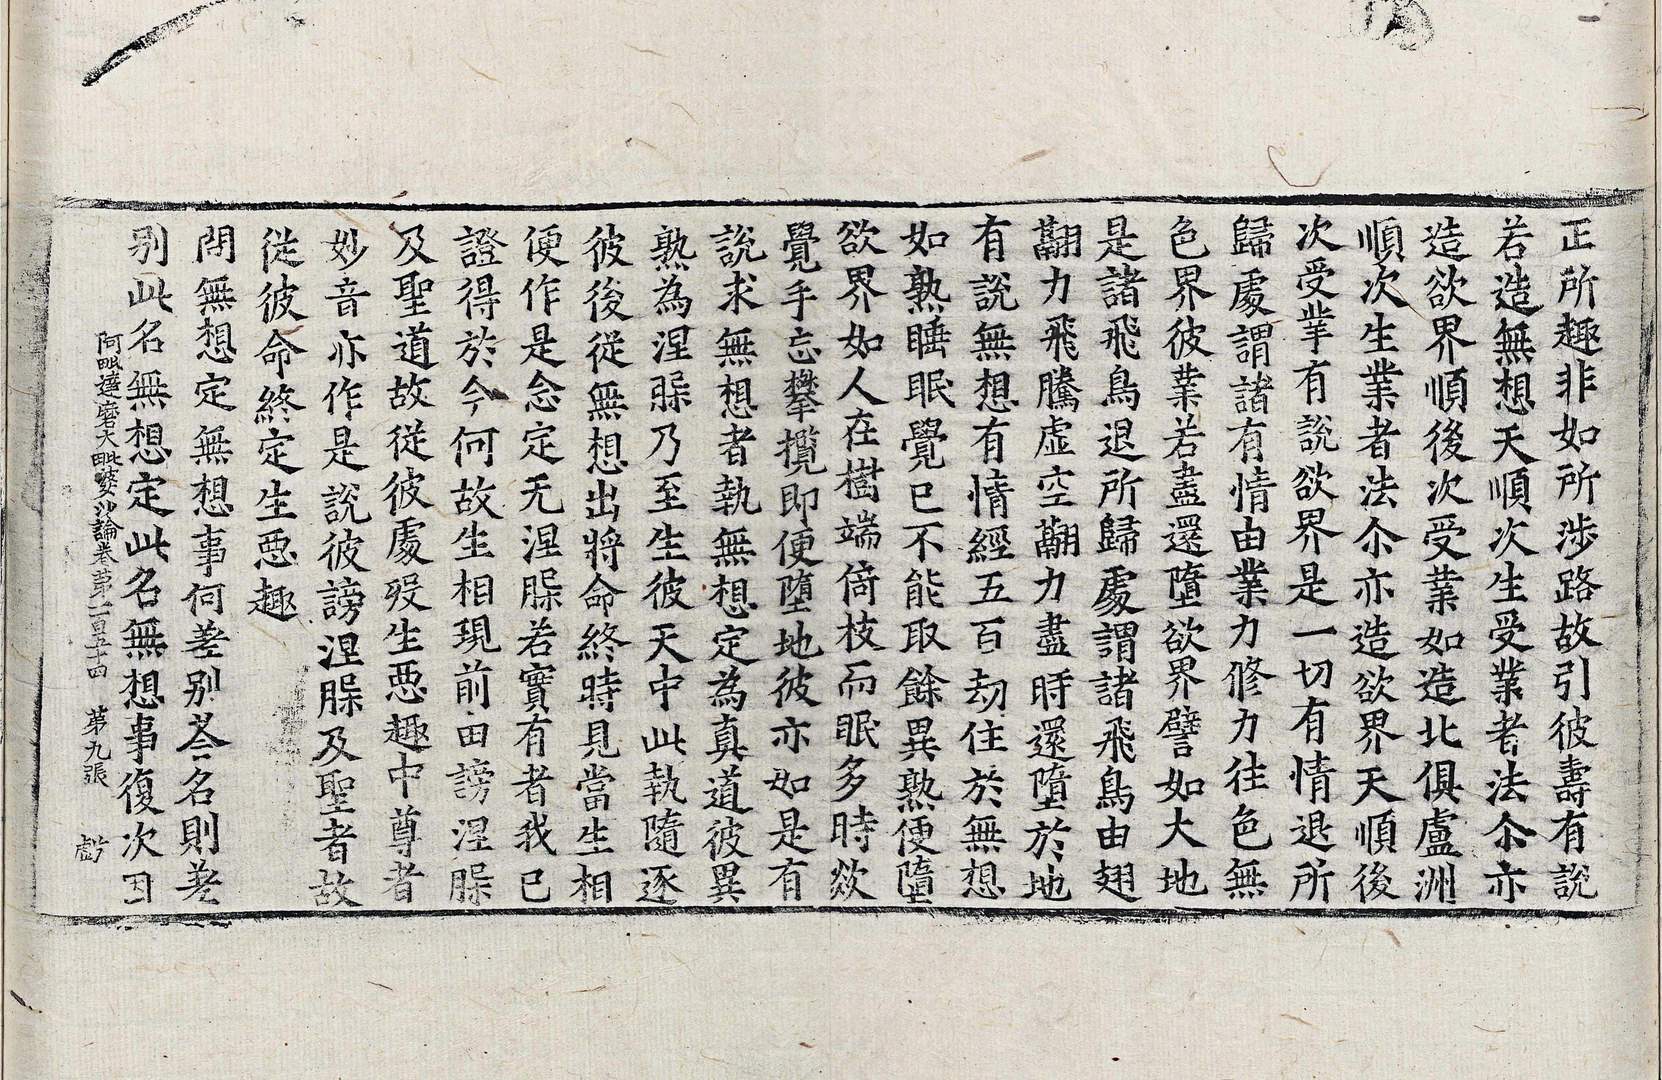 正所趣非如所涉路故引彼壽有說
若造無想天順次生受業者法尒亦
造欲界順後次受業如造北俱盧洲
順次生業者法尒亦造欲界天順後
次受業有說欲界是一切有情退所
歸處謂諸有情由業力修力往色無
色界彼業若盡還墮欲界譬如大地
是諸飛鳥退所歸處謂諸飛鳥由翅
翮力飛騰虛空翮力盡時還墮於地
有說無想有情經五百劫住於無想
如熟睡眠覺已不能取餘異熟便墮
欲界如人在樹端倚枝而眠多時欻
覺手忘攀攬即便墮地彼亦如是有
說求無想者執無想定為真道彼異
熟為涅槃乃至生彼天中此執隨逐
彼後從無想出將命終時見當生相
便作是念定无涅槃若實有者我已
證得於今何故生相現前由謗涅槃
及聖道故從彼處歿生惡趣中尊者
妙音亦作是說彼謗涅槃及聖者故
從彼命終定生惡趣
問無想定無想事何差別荅名則差
別此名無想定此名無想事復次因
阿毗達磨大毗婆沙論卷第一百五十四 第九張 虧